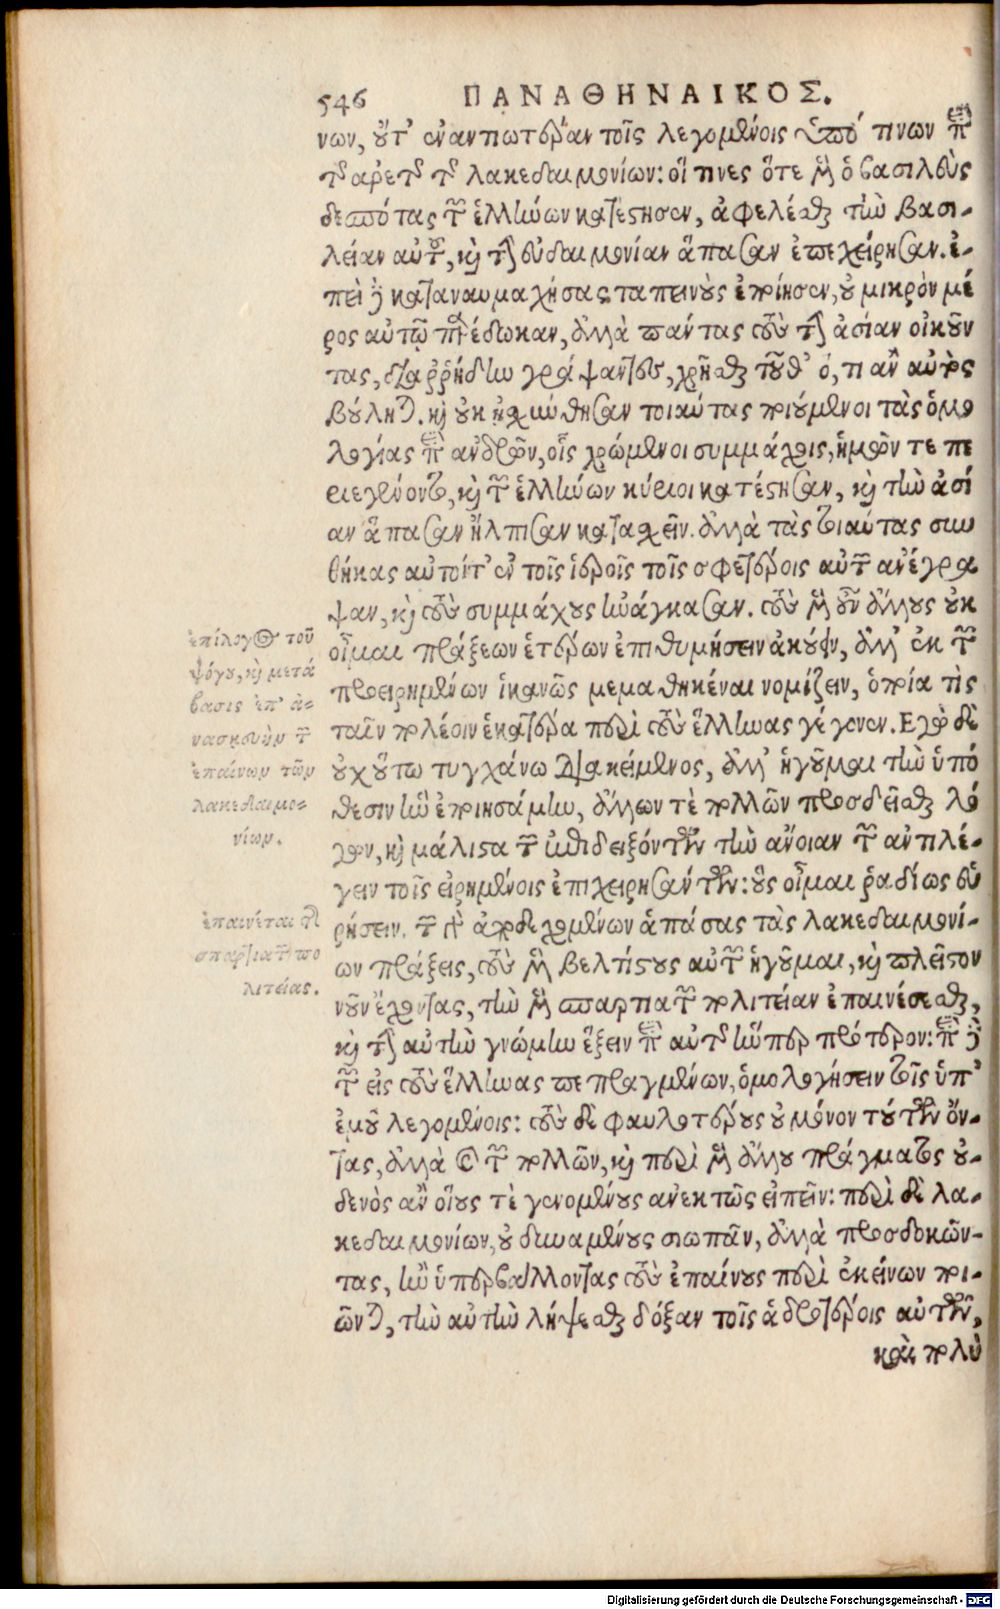 546 ΠΑΝΑΘΗΝΑΙΚΟΣ.
νων, οὔτ' ἐναντιωτέραν τοῖς λεγομένοις ὑπό τινων περὶ
τῆς ἀρετῆς τῆς λακεδαιμονίων: οἵ τινες ὅτε μὲν ὁ βασιλεὺς
δεσπότας τῶν ἑλλήνων κατέστησεν, ἀφελέσθαι τὴν βασι-
λείαν αὐτοῦ, καὶ τὴν εὐδαιμονίαν ἅπασαν ἐπεχείρησαν. ἐ-
πεὶ δὲ καταναυμαχήσας ταπεινοὺς ἐποίησεν, οὐ μικρὸν μέ
ρος αὐτῷ παρέδωκαν, ἀλλὰ πάντας τοὺς τὴν ἀσίαν οἰκοῦν
τας, διαῤῥήδην γράψαντες, χρῆσθαι τοῦθ' ὅ, τι ἂν αὐτὸς
βούληται. καὶ οὐκ ᾐσχύνθησαν τοιαύτας ποιούμενοι τὰς ὁμο
λογίας περὶ ἀνδρῶν, οἷς χρώμενοι συμμάχοις, ἡμῶν τε πε
ριεγένοντο, καὶ τῶν ἑλλήνων κύριοι κατέστησαν, καὶ τὴν ἀσί
αν ἅπασαν ἤλπισαν κατασχεῖν. ἀλλὰ τὰς τοιαύτας συν
θήκας αὐτοί τ' ἐν τοῖς ἱεροῖς τοῖς σφετέροις αὐτῶν ἀνέγρα
ψαν, καὶ τοὺς συμμάχους ἠνάγκασαν. τοὺς μὲν οὖν ἄλλους οὐκ
οἶμαι πράξεων ἑτέρων ἐπιθυμήσειν ἀκούειν, ἀλλ' ἐκ τῶν
προειρημένων ἱκανῶς μεμαθηκέναι νομίζειν, ὁποία τὶς
ταῖν πολέοιν ἑκατέρα περὶ τοὺς ἕλληνας γέγονεν. Εγὼ δὲ
οὐχ οὕτω τυγχάνω διακείμενος, ἀλλ' ἡγοῦμαι τὴν ὑπό
θεσιν ἣν ἐποιησάμην, ἄλλων τὲ πολλῶν προσδεῖσθαι λό
γων, καὶ μάλιστα τῶν ἐπιδειξόντων τὴν ἄνοιαν τῶν ἀντιλέ-
γειν τοῖς εἰρημένοις ἐπιχειρησάντων: οὓς οἶμαι ῥαδίως εὑ
ρήσειν. τῶν γὰρ ἀποδεχομένων ἁπάσας τὰς λακεδαιμονί-
ων πράξεις, τοὺς μὲν βελτίστους αὐτῶν ἡγοῦμαι, καὶ πλεῖστον
νοῦν ἔχοντας, τὴν μὲν σπαρτιατῶν πολιτείαν ἐπαινέσεσθαι,
καὶ τὴν αὐτὴν γνώμην ἕξειν περὶ αὐτῆς ἥνπερ πρότερον: περὶ δὲ
τῶν εἰς τοὺς ἕλληνας πεπραγμένων, ὁμολογήσειν τοῖς ὑπ'
ἐμοῦ λεγομένοις: τοὺς δὲ φαυλοτέρους οὐ μόνον τούτων ὄν-
τας, ἀλλὰ καὶ τῶν πολλῶν, καὶ περὶ μὲν ἄλλου πράγματος οὐ-
δενὸς ἂν οἵους τὲ γενομένους ἀνεκτῶς εἰπεῖν: περὶ δὲ λα-
κεδαιμονίων, οὐ δυναμένους σιωπᾶν, ἀλλὰ προσδοκῶν-
τας, ἢν ὑπερβάλλοντας τοὺς ἐπαίνους περὶ ἐκείνων ποι-
ῶνται, τὴν αὐτὴν λήψεσθαι δόξαν τοῖς ἁδροτέροις αὐτῶν,
καὶ πολὺ
ἐπίλογος τοῦ
ψόγου, καὶ μετά
βασις ἐπ' ἀ-
νασκευὴν τῶν
ἐπαίνων τῶν
λακεδαιμο-
νίων.
ἐπαινέται τῆς
σπαρτιατῶν πο
λιτείας.
Digitalisierung gefördert durch die Deutsche Forschungsgemeinschaft - DFG